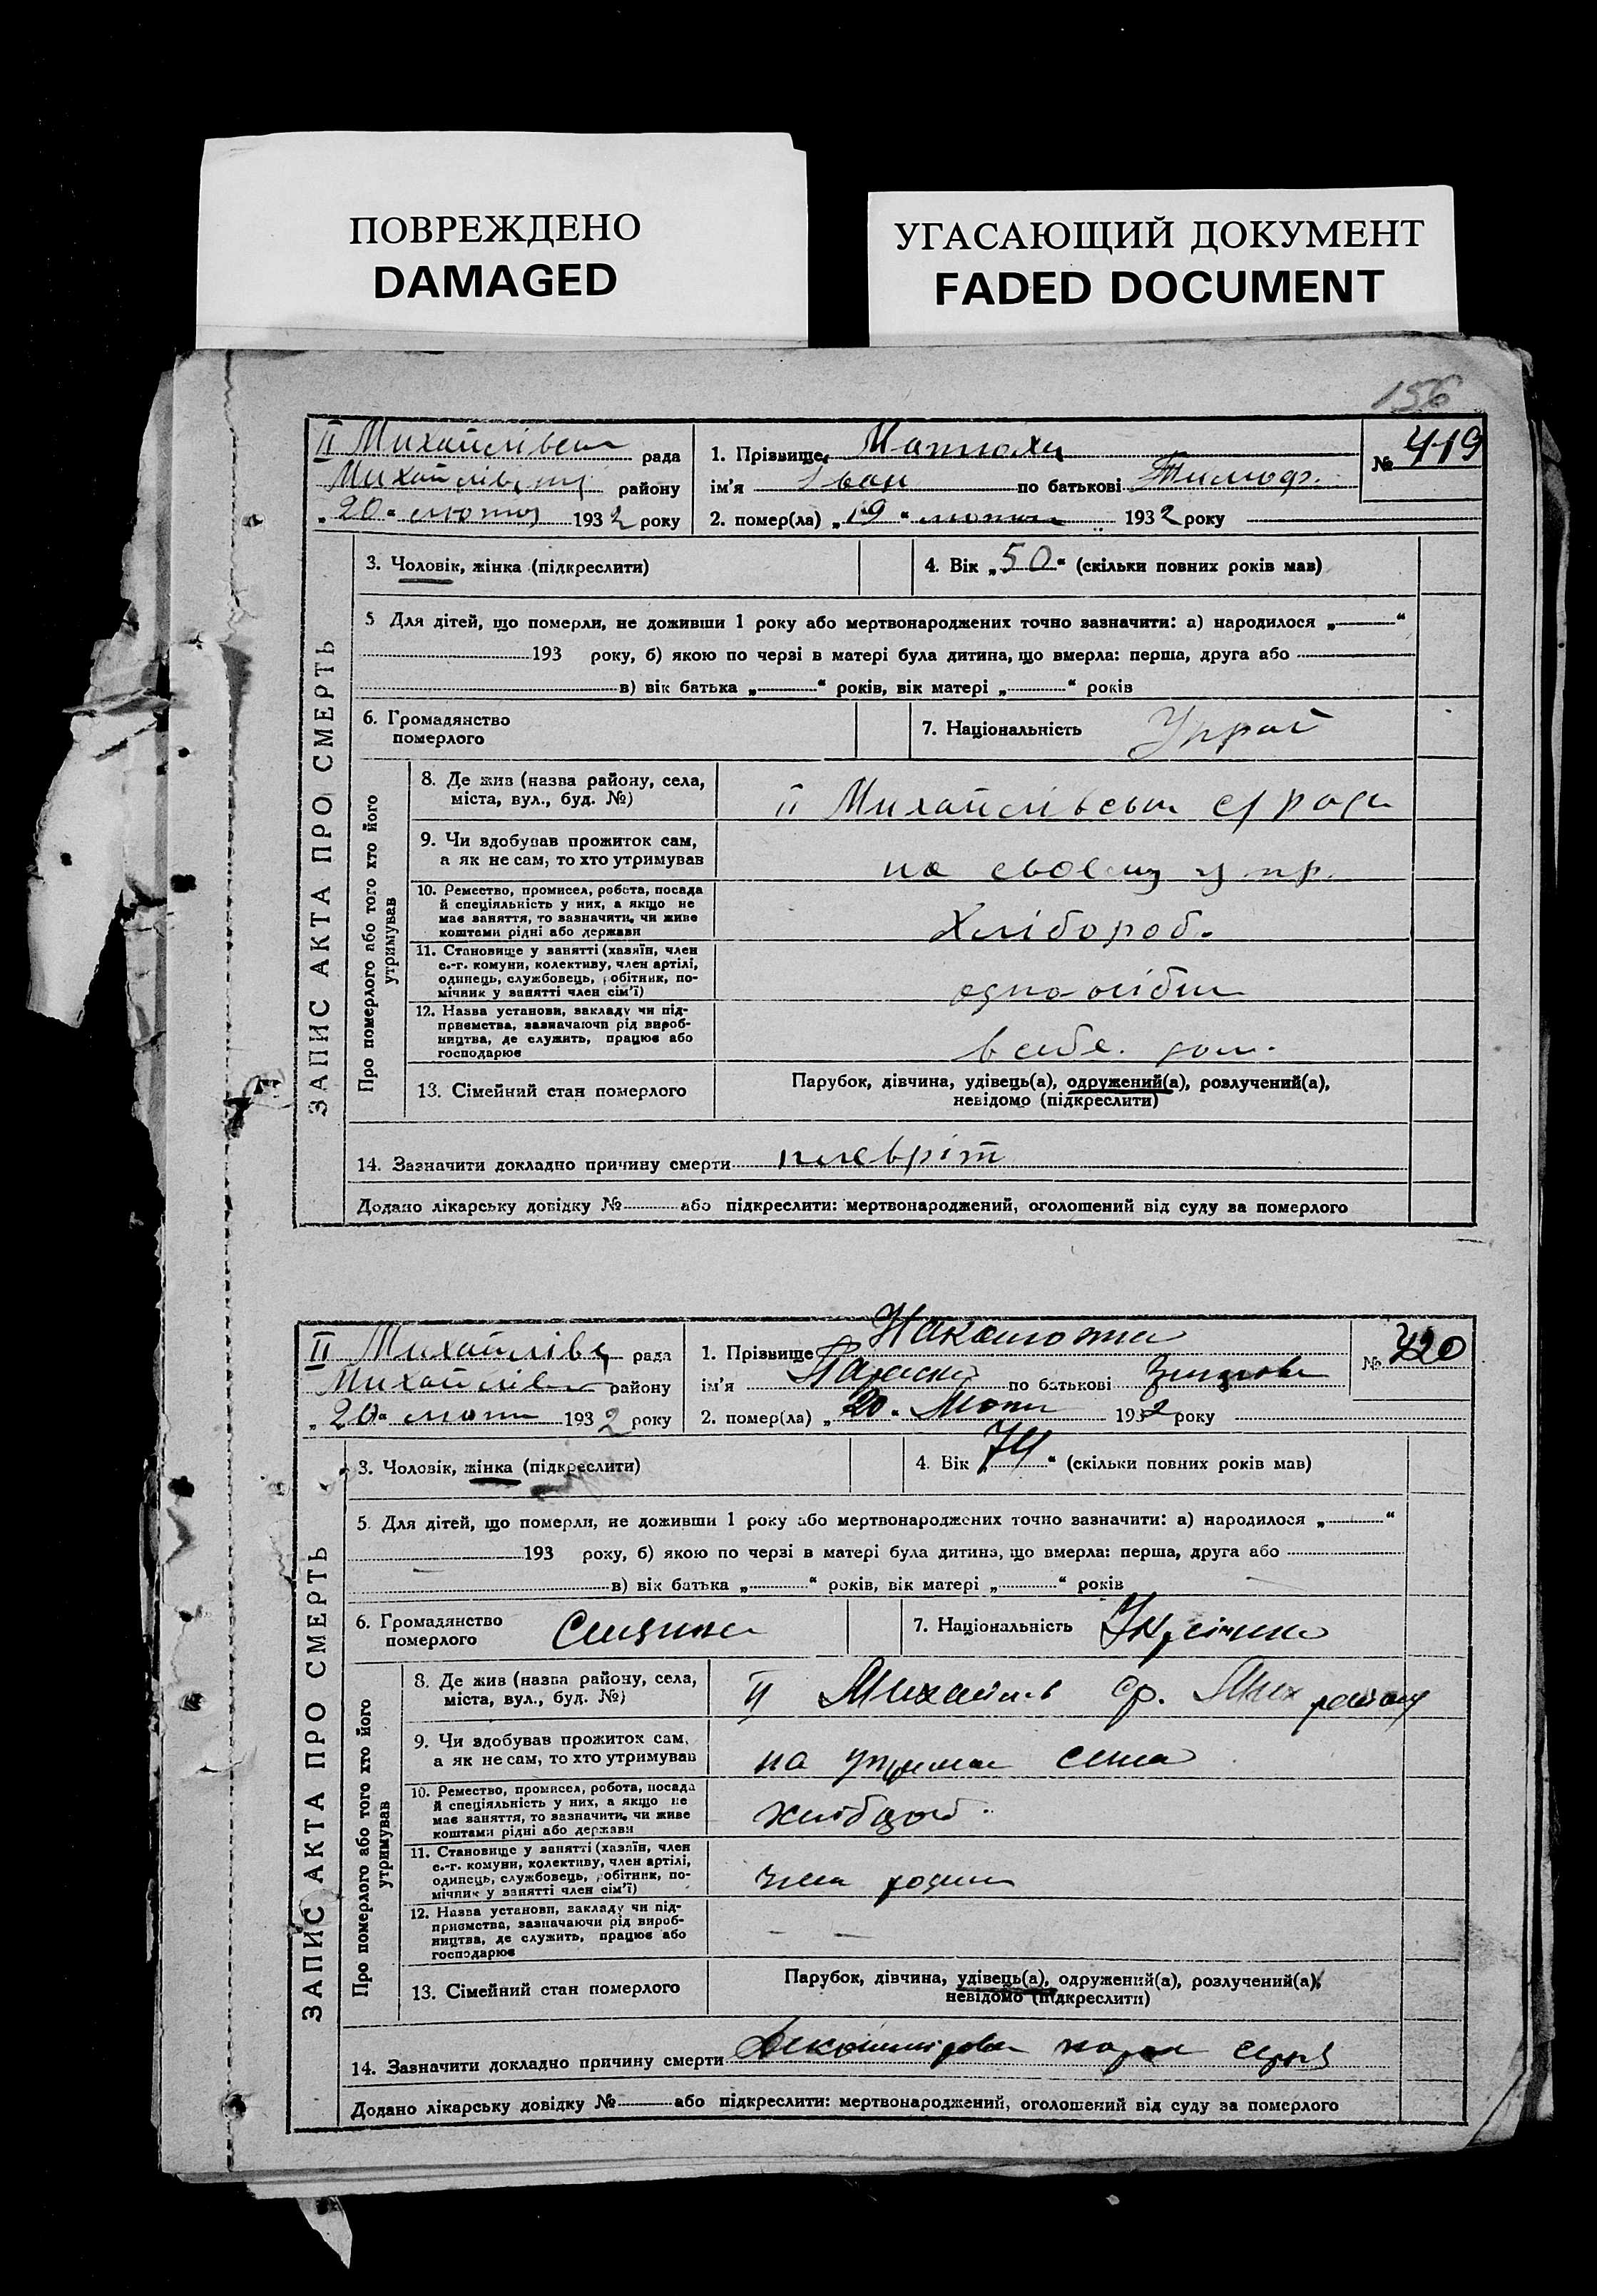 ПОВРЕЖДЕНО
DAMAGED
УГАСАЮЩИЙ ДОКУМЕНТ
FADED DOCUMENT
156
II Михайлівськ рада
район
„20“ лютого 1932 року
1. Прізвище Матюха
ім'я Іван по батькові Тимоф.
2. помер(ла) „19“ лютого 1932 року
№ 419
ЗАПИС АКТА ПРО СМЕРТЬ
3. Чоловік, жінка (підкреслити)
4. Вік „50“ (скільки повних років мав)
5 Для дітей, що померли, не доживши 1 року або мертвонароджених точно зазначити: а) народилося „ “
193 року, б) якою по черзі в матері була дитина, що вмерла: перша, друга або
в) вік батька „ “ років, вік матері „ “ років
6. Громадянство
померлого
7. Національність
Про померлого або того хто його
утримував
8. Де жив (назва району, села,
міста, вул., буд. №)
II Михайлівськ с/рада
9. Чи здобував прожиток сам,
а як не сам, то хто утримував
на своєму
10. Ремество, промисел, робота, посада
й спеціяльність у них, а якщо не
має заняття, то зазначити, чи живе
коштами рідні або держави
Хлібороб.
11. Становище у занятті (хазяїн, член
с.-г. комуни, колективу, член артілі,
одинець, службовець, робітник, по-
мічник у занятті член сім'ї)
12. Назва установи, закладу чи під-
приємства, зазначаючи рід вироб-
ництва, де служить, працює або
господарює
13. Сімейний стан померлого
Парубок, дівчина, удівець(а), одружений(а), розлучений(а),
невідомо (підкреслити)
14. Зазначити докладно причину смерти плевріт
Додано лікарську довідку № або підкреслити: мертвонароджений, оголошений від суду за померлого
II Михайлівс рада
району
„20“ лютого 1932 року
1. Прізвище
ім'я Параска по батькові
2. помер(ла) „20“ Лютого 1932 року
№ 420
ЗАПИС АКТА ПРО СМЕРТЬ
3. Чоловік, жінка (підкреслити)
4. Вік „74“ (скільки повних років мав)
5. Для дітей, що померли, не доживши 1 року або мертвонароджених точно зазначити: а) народилося „ “
193 року, б) якою по черзі в матері була дитина, що вмерла: перша, друга або
в) вік батька „ “ років, вік матері „ “ років
6. Громадянство
померлого
7. Національність
Про померлого або того хто його
утримував
8. Де жив (назва району, села,
міста, вул., буд. №)
II Михайлів ср. Мих району
9. Чи здобував прожиток сам,
а як не сам, то хто утримував
на утриман сина
10. Ремество, промисел, робота, посада
й спеціяльність у них, а якщо не
має заняття, то зазначити, чи живе
коштами рідні або держави
11. Становище у занятті (хазяїн, член
с.-г. комуни, колективу, член артілі,
одинець, службовець, робітник, по-
мічник у занятті член сім'ї)
член родини
12. Назва установи, закладу чи під-
приємства, зазначаючи рід вироб-
ництва, де служить, працює або
господарює
13. Сімейний стан померлого
Парубок, дівчина, удівець(а), одружений(а), розлучений(а),
невідомо (підкреслити)
14. Зазначити докладно причину смерти
Додано лікарську довідку № або підкреслити: мертвонароджений, оголошений від суду за померлого